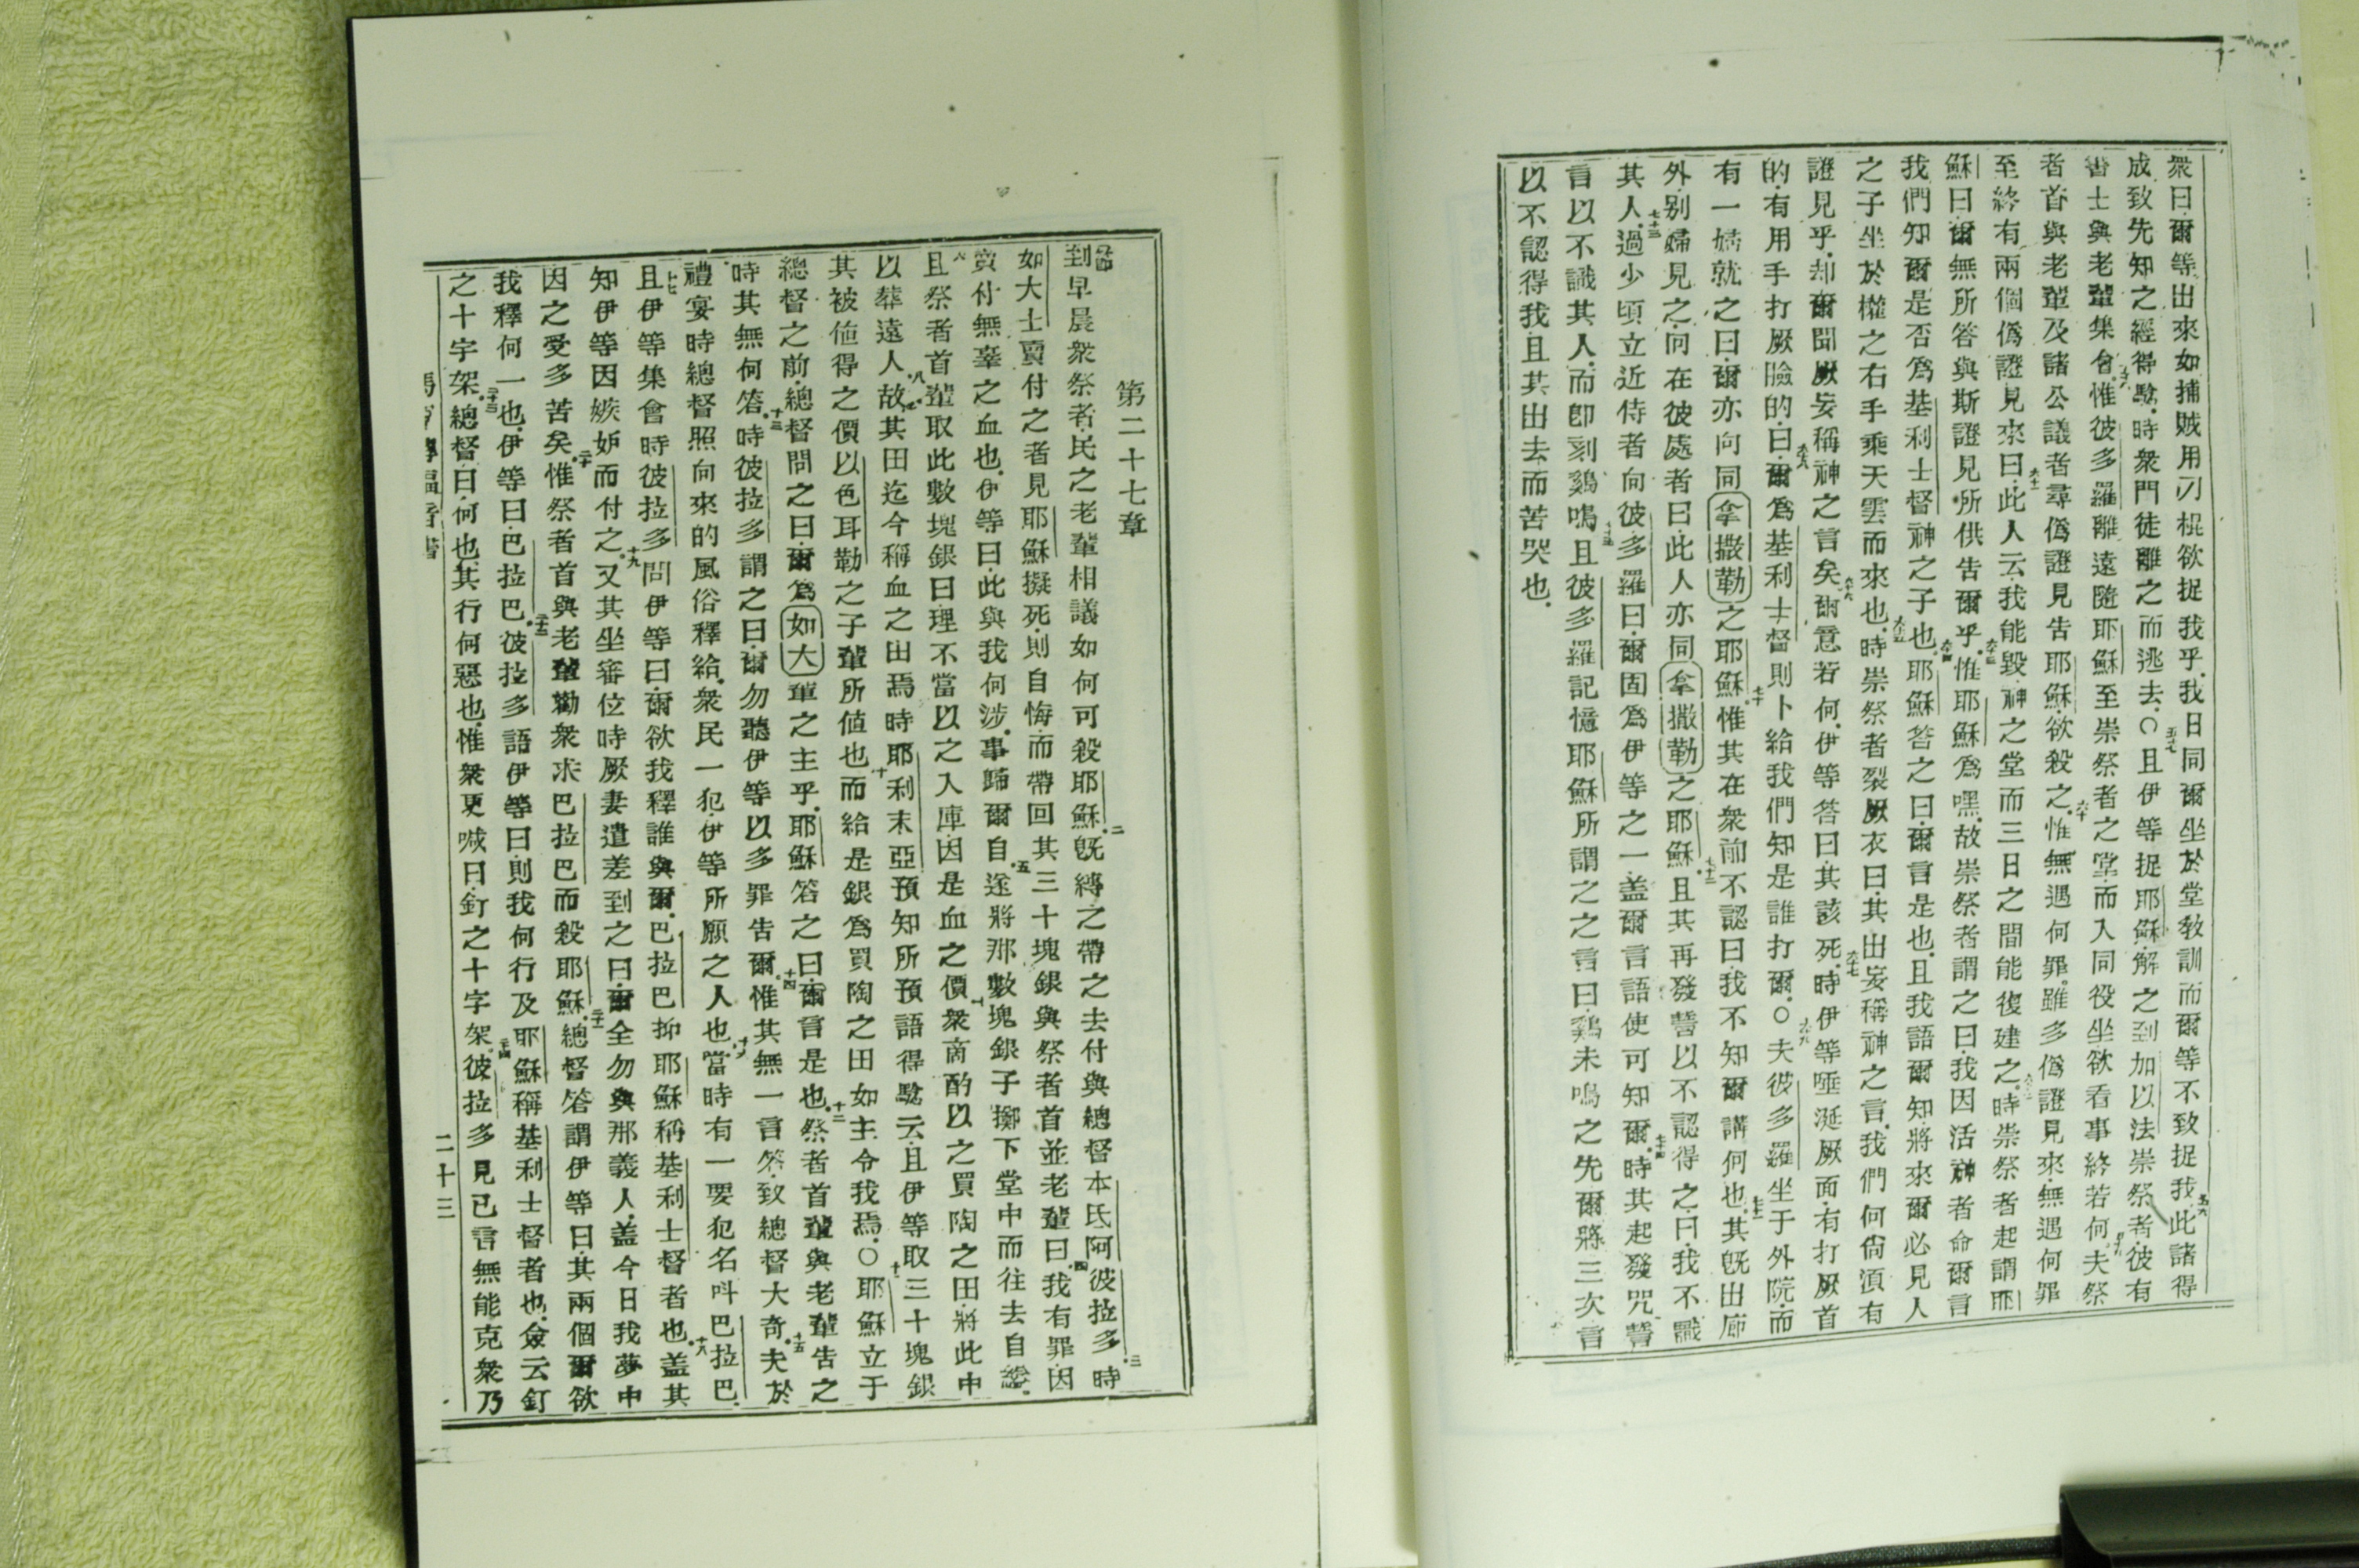 衆曰爾等出來如捕賊用刀棍欲捉我乎我日同爾坐於堂敎訓而爾等不致捉我五六此諸得
成致先知之經得驗時衆門徒離之而逃去○五七且伊等捉耶穌解之到加以法崇祭者彼有
書士與老輩集會五八惟彼多羅離遠隨耶穌至崇祭者之堂而入同役坐欲看事終若何五九夫祭
者首與老輩及諸公議者尋僞證見告耶穌欲殺之六十惟無遇何罪雖多僞證見來無遇何罪
至終有兩個僞證見來曰六一此人云我能毀神之堂而三日之間能復建之六二時崇祭者起謂耶
穌曰爾無所答與斯證見所供告爾乎六三惟耶穌爲嘿故崇祭者謂之曰我因活神者命爾言
我們知爾是否爲基利士督神之子也六四耶穌答之曰爾言是也且我語爾知將來爾必見人
之子坐於權之右手乘天雲而來也六五時崇祭者裂厥衣曰其出妄稱神之言我們何尙湏有
證見乎却爾聞厥妄稱神之言矣六六爾意若何伊等答曰其該死六七時伊等唾涎厥面有打厥首
的有用手打厥臉的六八曰爾爲基利士督則卜給我們知是誰打爾○六九夫彼多羅坐于外院而
有一婦就之曰爾亦向同拿撒勒之耶穌七十惟其在衆前不認曰我不知爾講何也七一其旣出廊
外別婦見之向在彼處者曰此人亦同拿撒勒之耶穌七二且其再發誓以不認得之曰我不識
其人七三過少頃立近侍者向彼多羅曰爾固爲伊等之一盖爾言語使可知爾七四時其起發咒誓
言以不識其人而卽刻鷄鳴七五且彼多羅記憶耶穌所謂之之言曰鷄未鳴之先爾將三次言
以不認得我且其出去而苦哭也
第二十七章
到早晨衆祭者民之老輩相議如何可殺耶穌二旣縛之帶之去付與總督本氐阿彼拉多三時
如大士賣付之者見耶穌擬死則自悔而帶回其三十塊銀與祭者首並老輩曰四我有罪因
賣付無辜之血也伊等曰此與我何涉事歸爾自五遂將那數塊銀子擲下堂中而往去自縊
六且祭者首輩取此數塊銀曰理不當以之入庫因是血之價七衆商酌以之買陶之田將此中
以葬遠人八故其田迄今稱血之田焉九時耶利末亞預知所預語得驗云且伊等取三十塊銀
其被估得之價以色耳勒之子輩所値也十而給是銀爲買陶之田如主令我焉○十一耶穌立于
總督之前總督問之曰爾爲如大輩之主乎耶穌答之曰爾言是也十二祭者首輩與老輩告之
時其無何答十三時彼拉多謂之曰爾勿聽伊等以多罪告爾十四惟其無一言答致總督大奇十五夫於
禮宴時總督照向來的風俗釋給衆民一犯伊等所願之人也十六當時有一要犯名呌巴拉巴
十七且伊等集會時彼拉多問伊等曰爾欲我釋誰與爾巴拉巴抑耶穌稱基利士督者也十八盖其
知伊等因嫉妒而付之十九又其坐審位時厥妻遣差到之曰爾全勿與那義人盖今日我夢中
因之受多苦矣二十惟祭者首與老輩勸衆求巴拉巴而殺耶穌二一總督答謂伊等曰其兩個爾欲
我釋何一也伊等曰巴拉巴二二彼拉多語伊等曰則我何行及耶穌稱基利士督者也僉云釘
之十字架二三總督曰何也其行何惡也惟衆更喊曰釘之十字架二四彼拉多見已言無能克衆乃
二十三